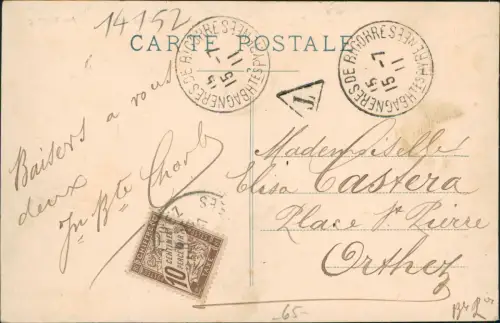 14152
CARTE POSTALE
BAGNERES DE BIGORRE
HTES PYRENEES
15 -7
11
BAGNERES DE BIGORRE
HTES PYRENEES
15 -7
11
T
Baisers a vous
deux
Mademoiselle
Elisa Castera
Place St Pierre
Orthez
10
CENTIMES
A PERCEVOIR
-65-